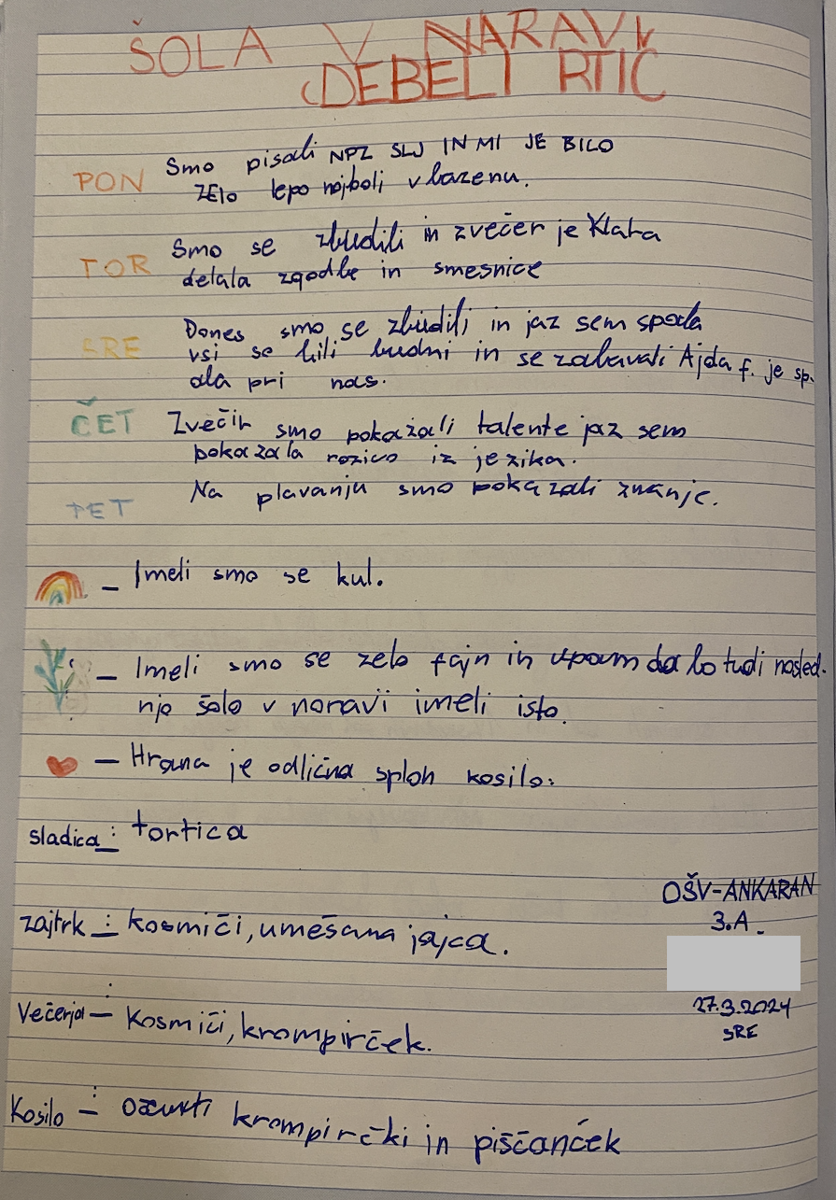 ŠOLA V NARAVI
DEBELI RTIČ
PON Smo pisali NPZ SLJ IN MI JE BILO
ZElo lepo najbolj v bazenu.
TOR Smo se zbudili in zvečer je Klara
delala zgodbe in smesnice
SRE Dones smo se zbudili in jaz sem spala
vsi so bili budni in se zabavali Ajda f. je sp.
ala pri nas.
ČET Zvečir smo pokazali talente jaz sem
pokazala rozico iz jezika.
PET Na plavanju smo pokazali znanje.
– Imeli smo se kul.
– Imeli smo se zelo fajn in upam da bo tudi nasled.
nja šola v naravi imeli isto.
– Hrana je odlična sploh kosilo.
sladica: tortica
OŠV-ANKARAN
3.A
zajtrk: kosmiči, umešana jajca.
27.3.2024
SRE
Večerja: Kosmiči, krompirček.
Kosilo: ocvrti krompirčki in piščanček